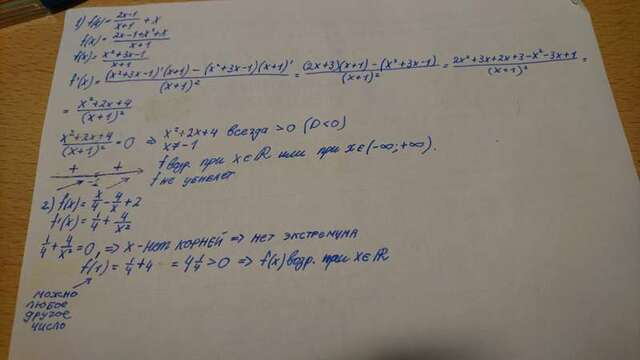 1) f(x) = (2x-1)/(x+1) + x
f(x) = (2x-1+x²+x)/(x+1)
f(x) = (x²+3x-1)/(x+1)
f'(x) = ((x²+3x-1)'(x+1) - (x²+3x-1)(x+1)')/(x+1)² = ((2x+3)(x+1) - (x²+3x-1))/(x+1)² = (2x²+3x+2x+3-x²-3x+1)/(x+1)² =
= (x²+2x+4)/(x+1)²
(x²+2x+4)/(x+1)² = 0 ⇒ x²+2x+4 всегда >0 (D<0)
x≠-1
f возр. при x∈ℝ или при x∈(-∞;+∞).
+ -1 +
f не убывает
2) f(x) = x/4 - 4/x + 2
f'(x) = 1/4 + 4/x²
1/4 + 4/x² = 0, ⇒ x - нет корней ⇒ нет экстремума
f'(1) = 1/4 + 4 = 4 1/4 > 0 ⇒ f(x) возр. при x∈ℝ
можно
любое
другое
число